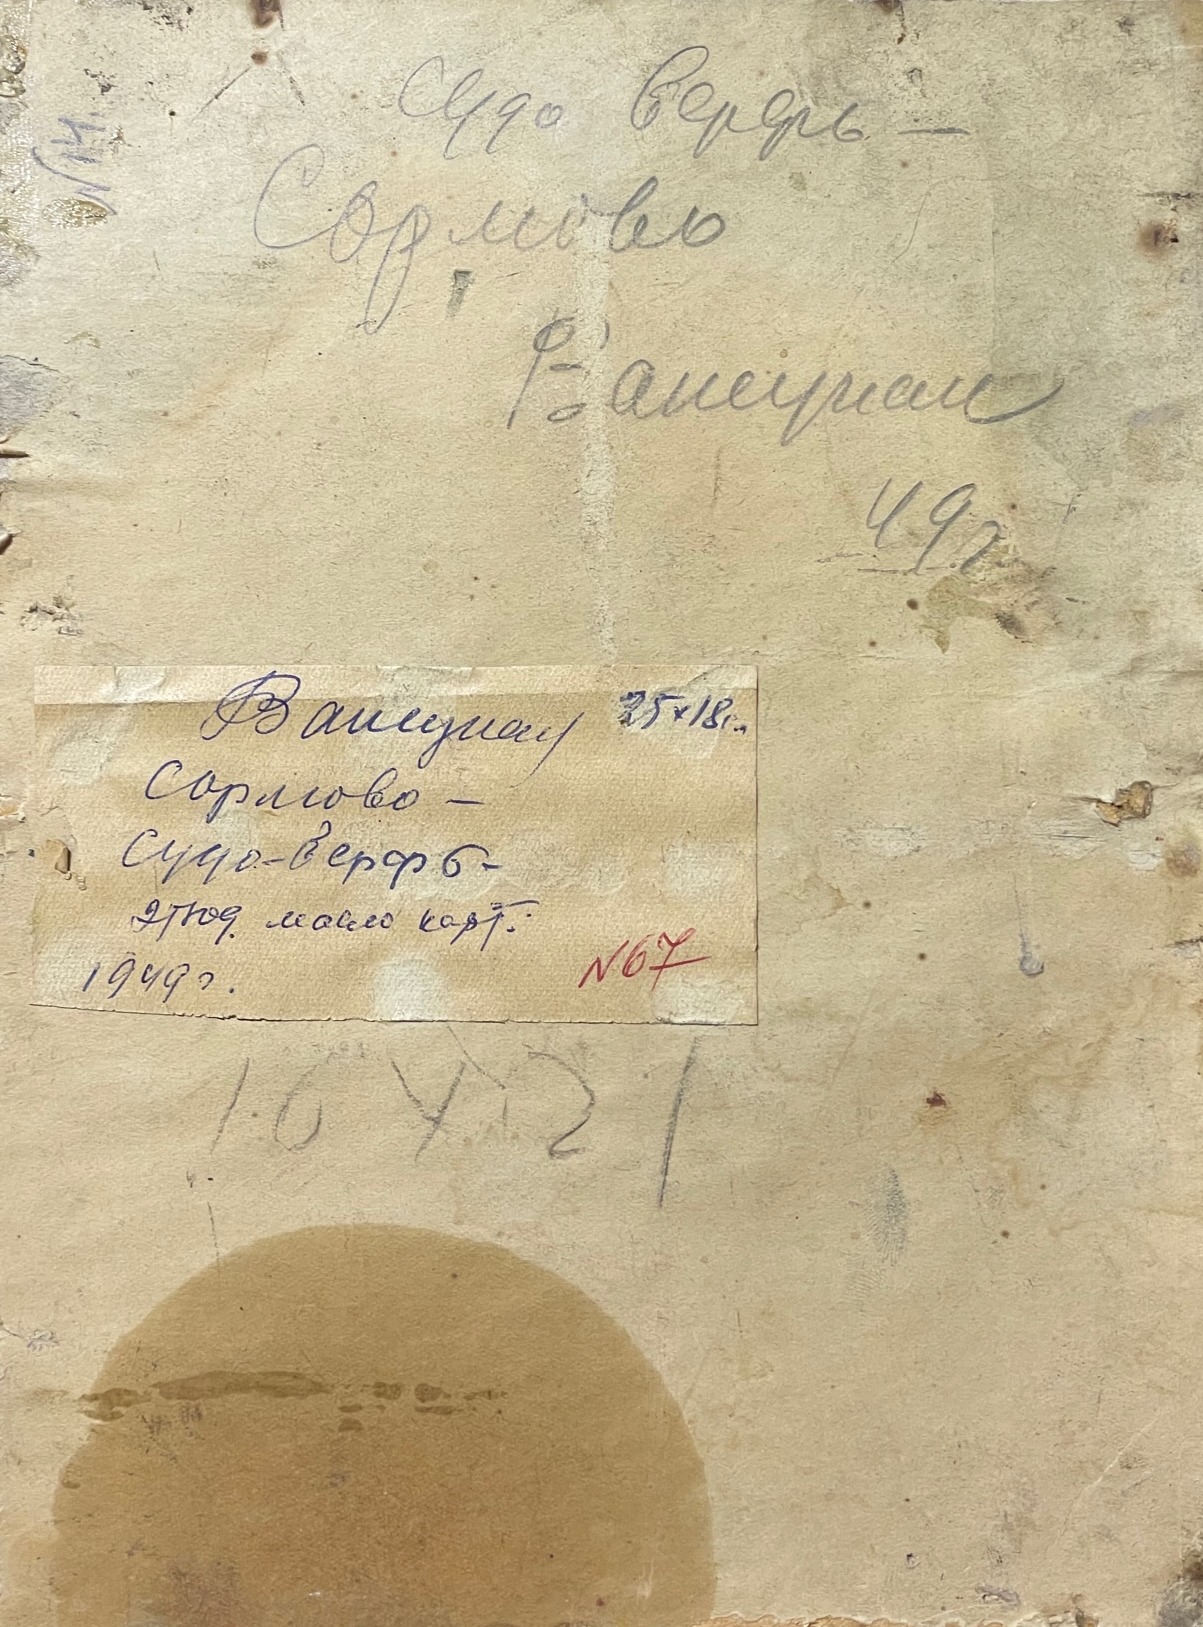 Судо верфь —
Сормово
Ванециан
49г
N 14.
Ванециан 25×18см
Сормово —
Судо-верфь-
этюд. масло карт.
1949 г.
N67